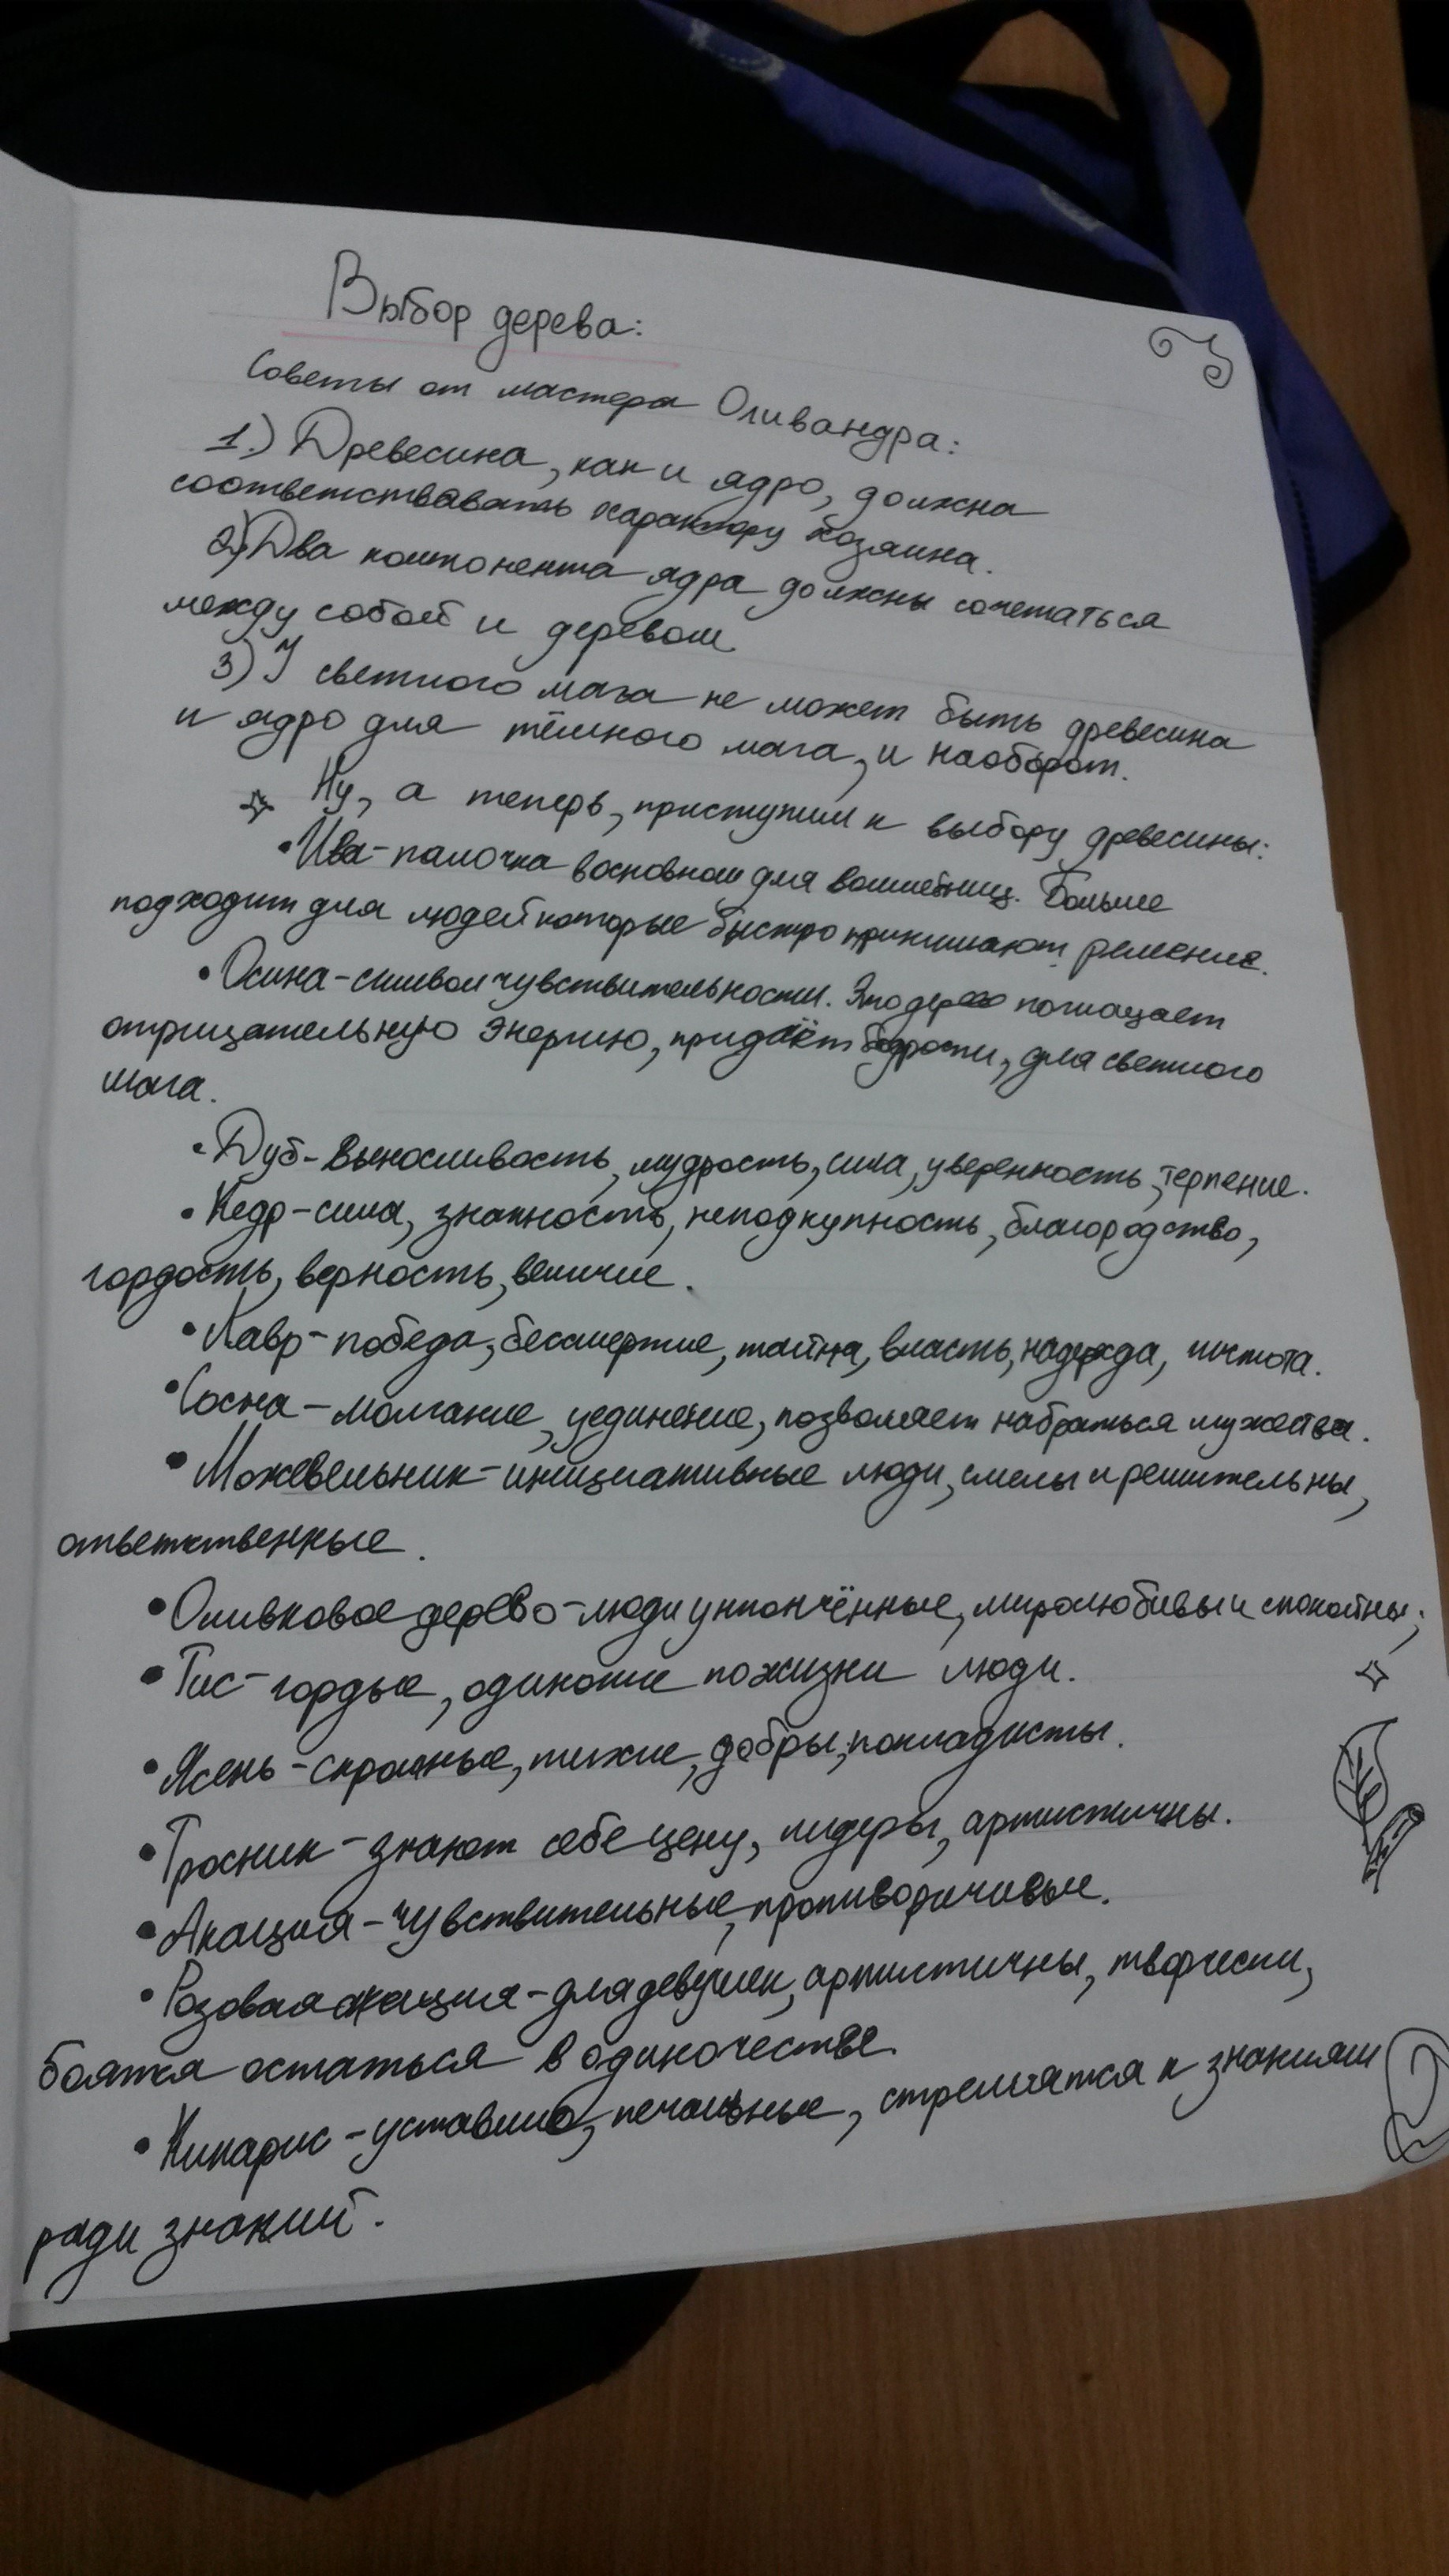 Выбор дерева:
Советы от мастера Оливандра:
1.) Древесина, как и ядро, должна
соответствавать характеру хозяина.
2) Два компонента ядра должны сочетаться
между собой и деревом
3) У светлого мага не может быть древесина
и ядро для тёмного мага, и наоборот.
Ну, а теперь, приступим к выбору древесины:
• Ива - палочка восновном для волшебниц. Больше
подходит для людей которые быстро принимают решение.
• Осина - символ чувствительности. Это дерево поглащает
отрицательную энергию, придаёт бодрости, для светлого
мага.
• Дуб - Выносливость, мудрость, сила, уверенность, терпение.
• Кедр - сила, знатность, неподкупность, благородство,
гордость, верность, величие.
• Лавр - победа, бессмертие, тайна, власть, надежда, чистота.
• Сосна - молчание, уединение, позволяет набраться мужества.
• Можевельник - инициативные люди, смелы и решительны,
ответственные.
• Оливковое дерево - люди утончённые, миролюбивы и спокойны;
• Тис - гордые, одинокие по жизни люди.
• Ясень - скромные, тихие, добры, покладисты.
• Тросник - знают себе цену, лидеры, артистичны.
• Акация - чувствительные, противоричивые.
• Розовая акация - для девушек, артистичны, творчески,
боятся остаться в одиночестве.
• Кипарис - печальные, стремятся к знаниям
ради знаний.